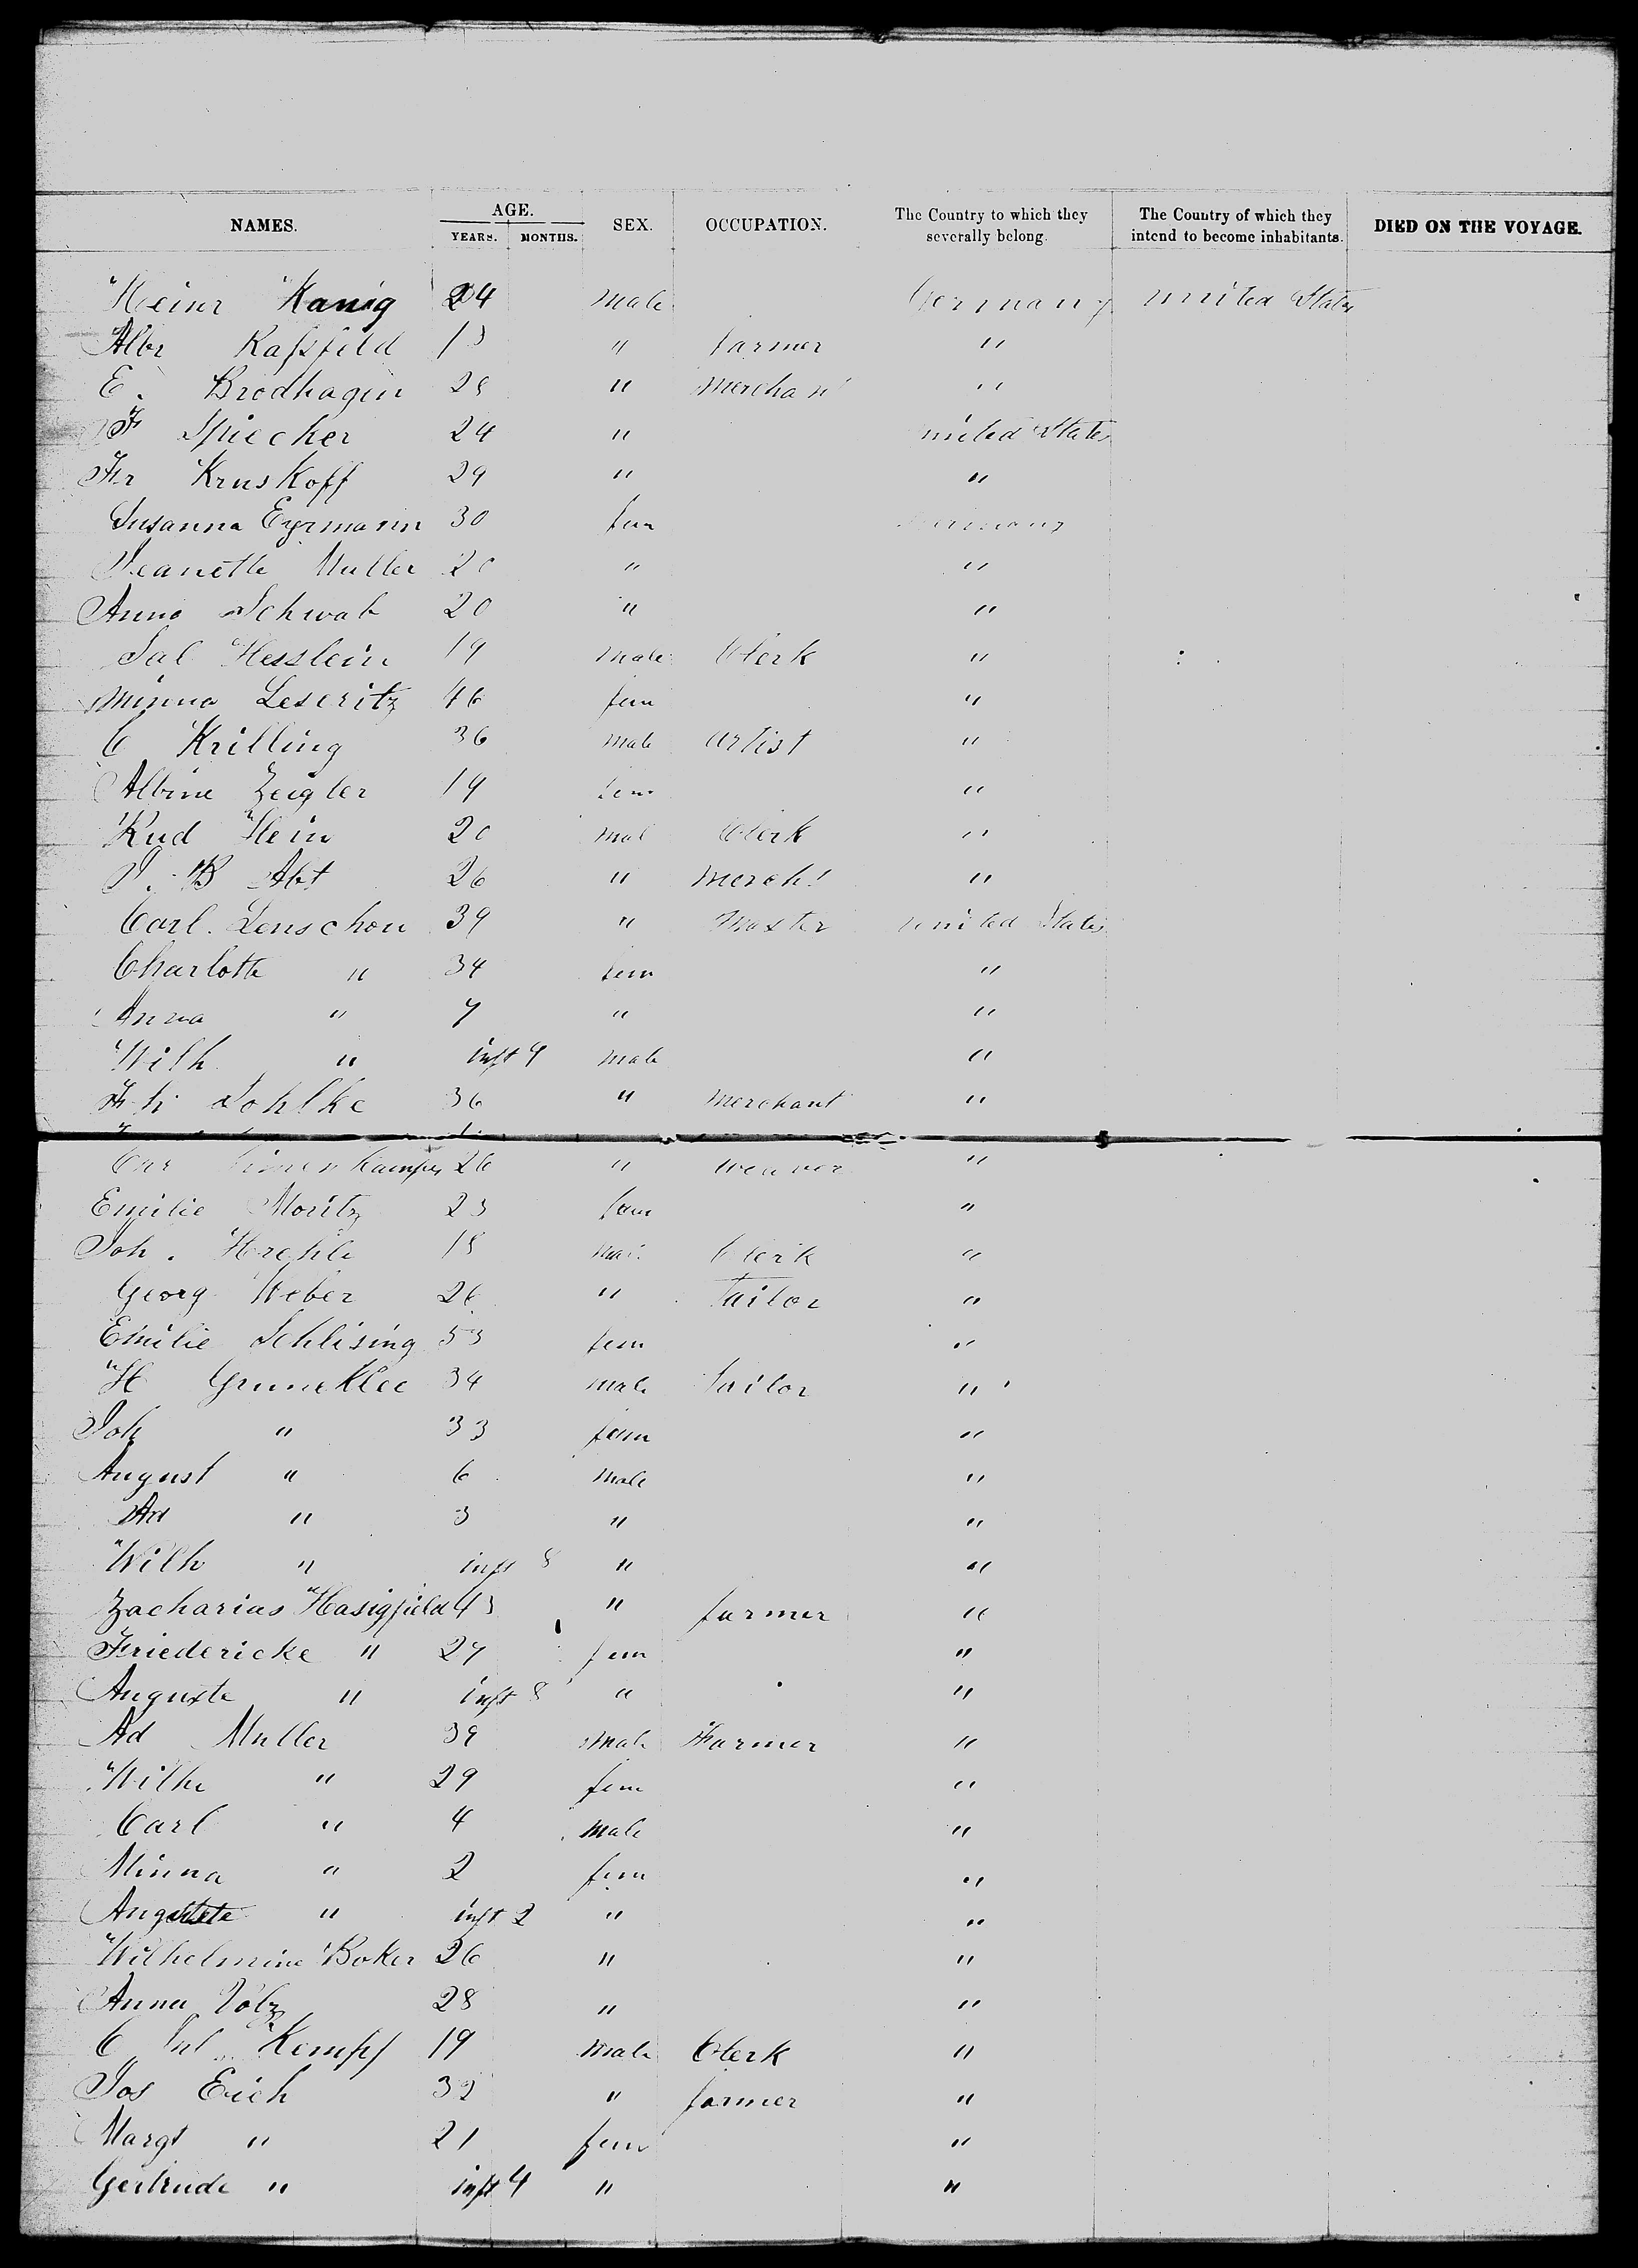 NAMES. AGE. YEARS. MONTHS. SEX. OCCUPATION. The Country to which they severally belong. The Country of which they intend to become inhabitants. DIED ON THE VOYAGE.
Heinr Kanig 24 male Germany united States
Albr Kassfeld " farmer "
E. Brodhagen 28 " Merchant "
F Spiecker 24 " united States
Fr Kruskoff 29 " "
Susanna Eyrmann 30 fem Germany
Jeanette Muller 20 " "
Anna Schwab 20 " "
Sal Hesslein 19 male Clerk "
Minna Leseritz 46 fem "
C Krilling 36 male artist "
Albine Zeigler 19 fem "
Rud Hein 20 mal Clerk "
J. B Abt 26 " Mercht "
Carl. Lenschou 39 " Master united States
Charlotte " 34 fem "
Anna " 7 " "
Wilh " inft 9 male "
Fr Dohlke 36 " Merchant "
26 " weaver "
Emilie Moritz 23 fem "
Joh. 18 mal Clerk "
Georg Weber 26 " Tailor "
Emilie Schlising 53 fem "
H Gruneklee 34 male Tailor "
Joh " 33 fem "
August " 6 male "
Ad " 3 " "
Wilh " inft 8 " "
Zacharias Hasigfield 43 " farmer "
Friedericke " 27 fem "
Auguste " inft 8 " "
Ad Muller 39 male Farmer "
Wilhe " 29 fem "
Carl " 4 male "
Minna " 2 fem "
Auguste " inft 2 " "
Wilhelmine Boker 26 " "
Anna Volz 28 " "
C Jul Kempf 19 male Clerk "
Jos Eich 32 " farmer "
Margt " 21 fem "
Gertrude " inft 4 " "